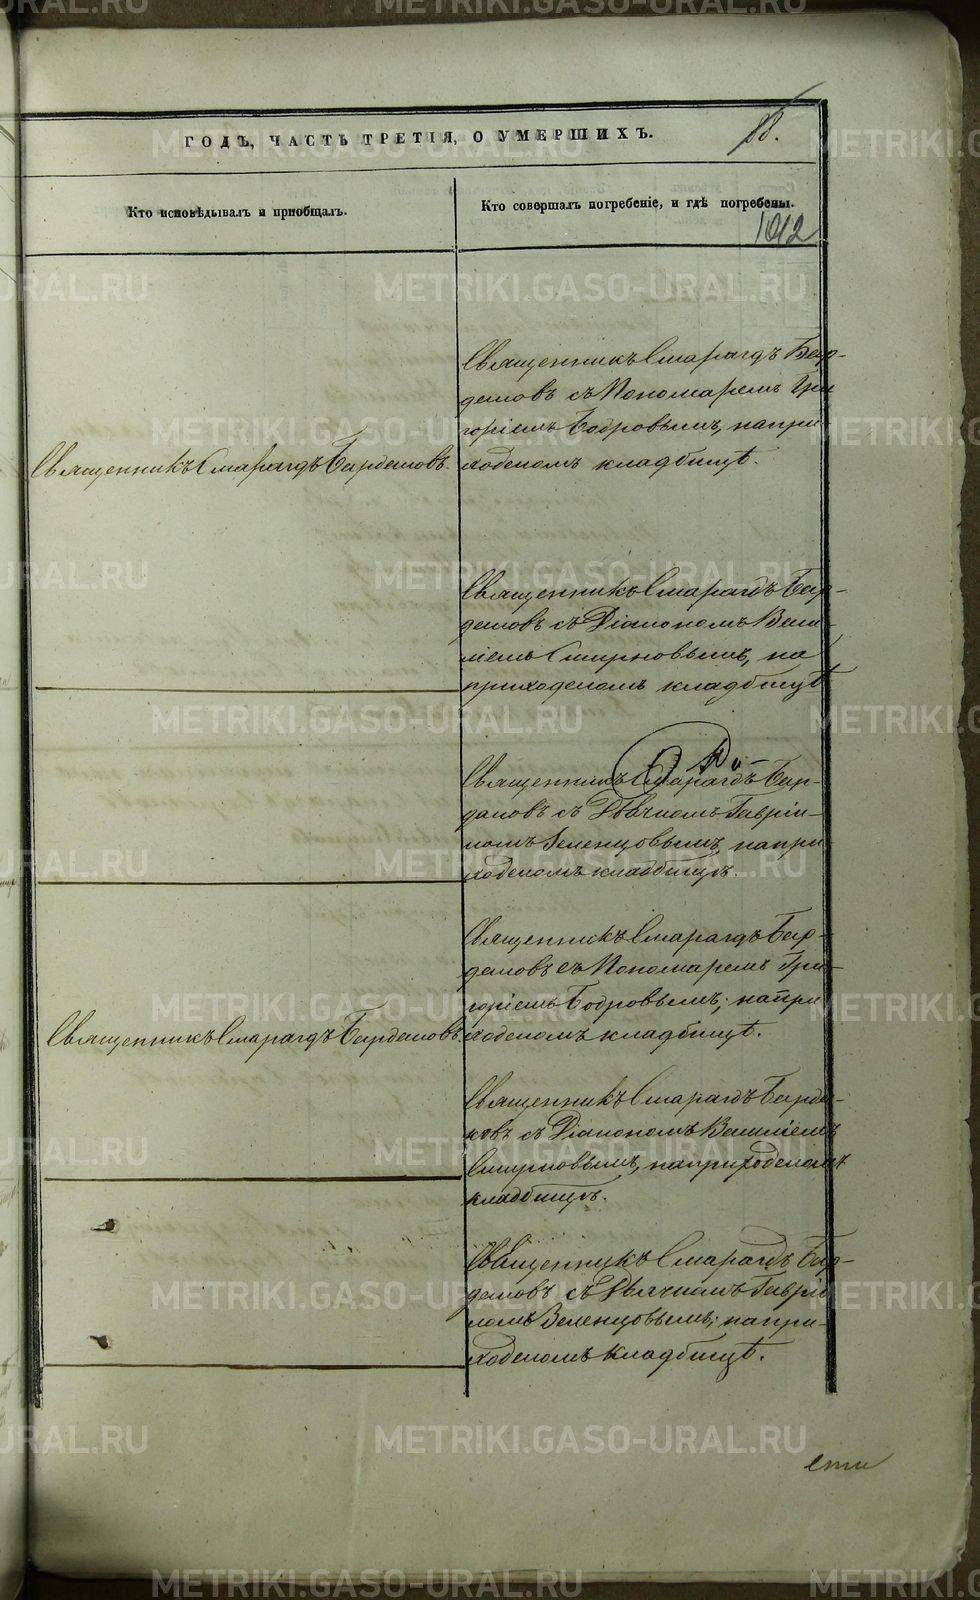 ГОДЪ, ЧАСТЬ ТРЕТІЯ, О УМЕРШИХЪ.
Кто исповѣдывалъ и пріобщалъ.
Кто совершалъ погребеніе, и гдѣ погребены.
1012
Священникъ Смарагдъ Бар-
дановъ съ Пономаремъ Гри
горіемъ Бодровымъ, напри
ходскомъ кладбищѣ.
Священникъ Смарагдъ Бардановъ
Священникъ Смарагдъ Бар-
дановъ съ Діакономъ
Смирновымъ, на
приходскомъ кладбищѣ
Священникъ Смарагдъ Бар-
дановъ съ Дьячкомъ Гавріи-
ломъ Зеленцовымъ, напри
ходскомъ кладбищѣ.
Священникъ Смарагдъ Бар-
дановъ съ Пономаремъ Гри-
горіемъ Бодровымъ, напри
ходскомъ кладбищѣ.
Священникъ Смарагдъ Бардановъ
Священникъ Смарагдъ Барда-
новъ съ Діакономъ
Смирновымъ, наприходскомъ
кладбищѣ.
Священникъ Смарагдъ Бар-
дановъ съ Дьячкомъ Гаврііо
ломъ Зеленцовымъ, напри-
ходскомъ кладбищѣ.
METRIKI.GASO-URAL.RU